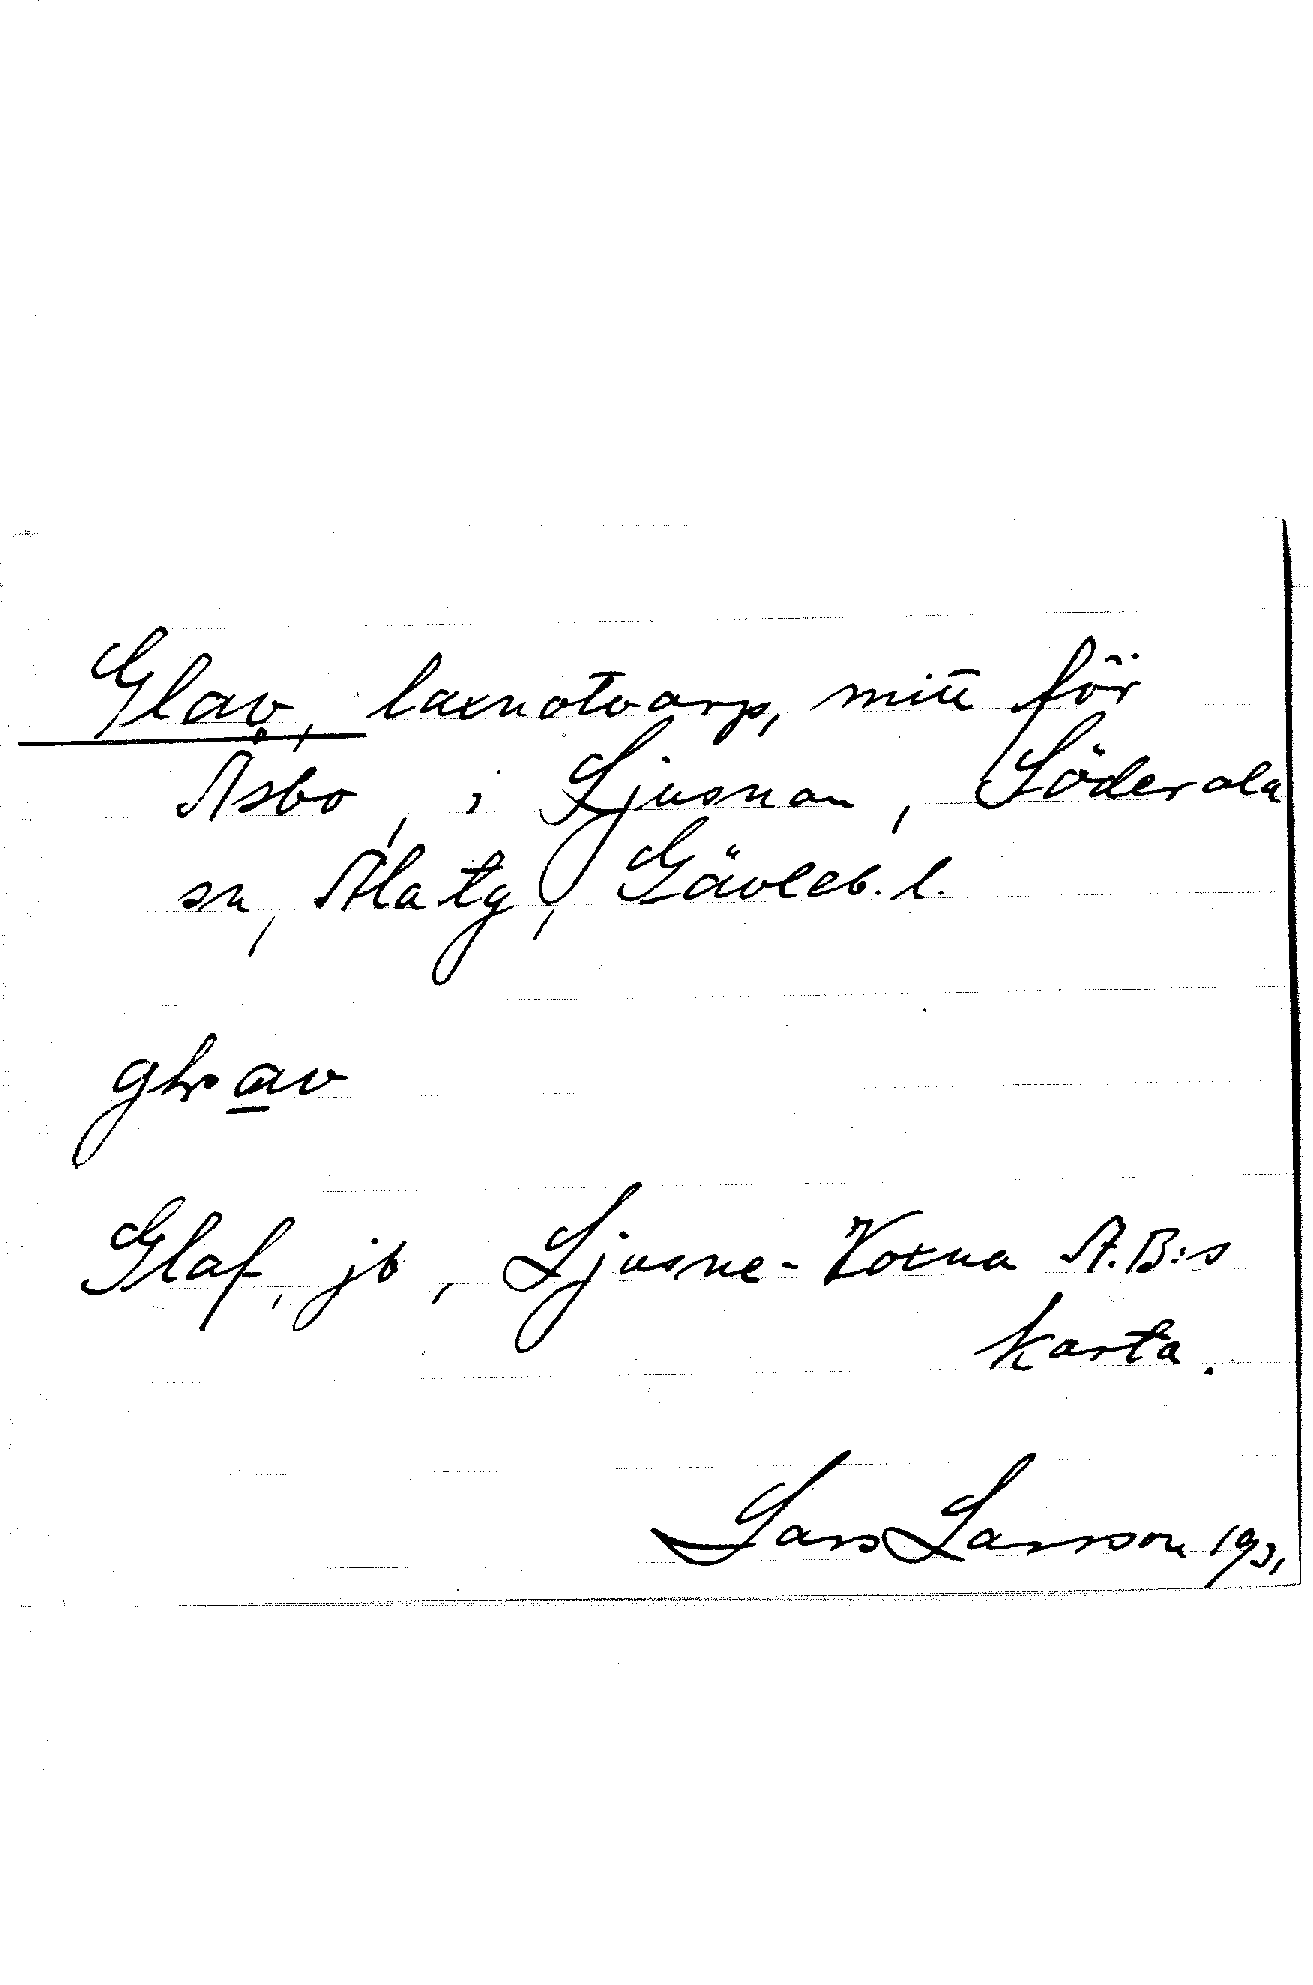 Glav, laxnotvarp, mitt för
Åsbo, i Ljusnan, Söderala
sn, Ala tg, Gävleb. l.
Glaf, jb, Ljusne-Voxna A.B:s
karta.
Lars Larsson 1931